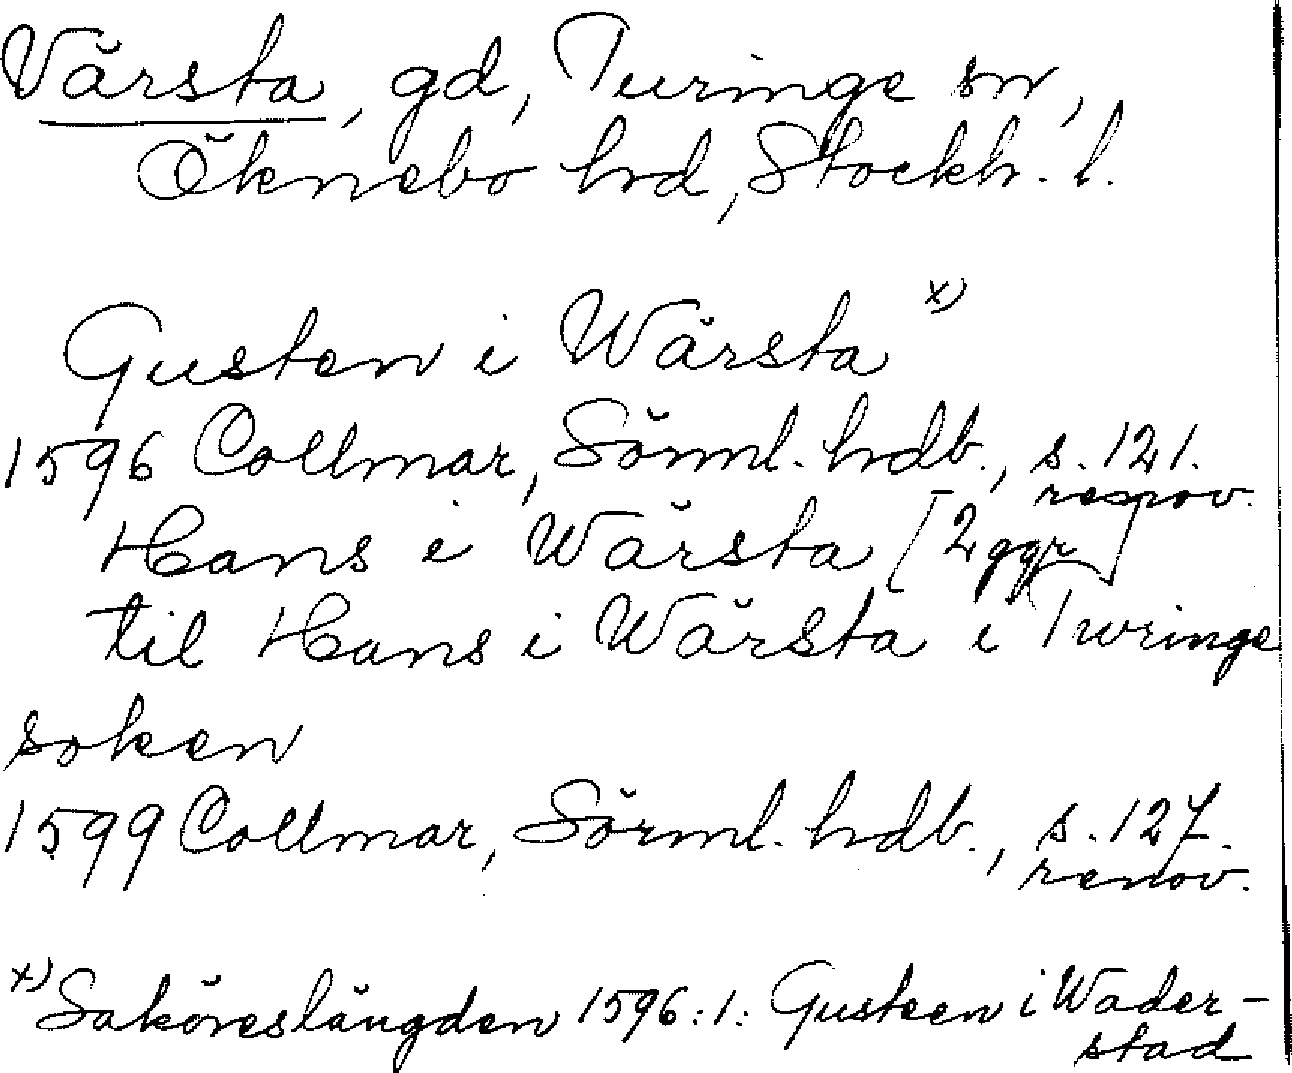 Värsta, gd, Turinge sn,
Öknebo hrd, Stockh. l.
Gusten i Wärsta x)
1596 Collmar, Sörml. hrdb., s. 121.
renov.
Hans i Wärsta [2 ggr]
til Hans i Wärsta i Twringe
soken
1599 Collmar, Sörml. hrdb., s. 127.
renov.
x) Saköreslängden 1596:1: Gusteen i Wader-
stad